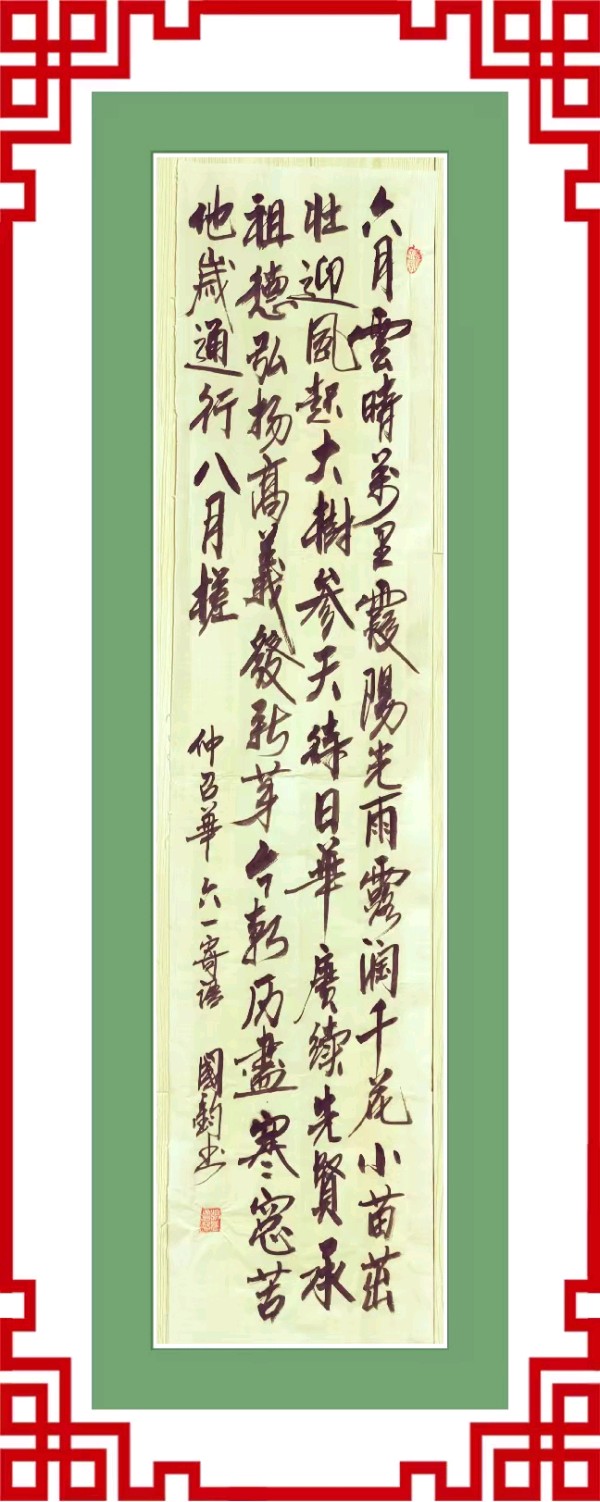 六月雲晴萬里霞陽光雨露润千花小苗茁
壯迎風起大樹参天待日華賡續先賢承
祖德弘扬高義發新芽今朝历盡寒窓苦
他歲通行八月槎
仲召華 六一寄语 國鈞书